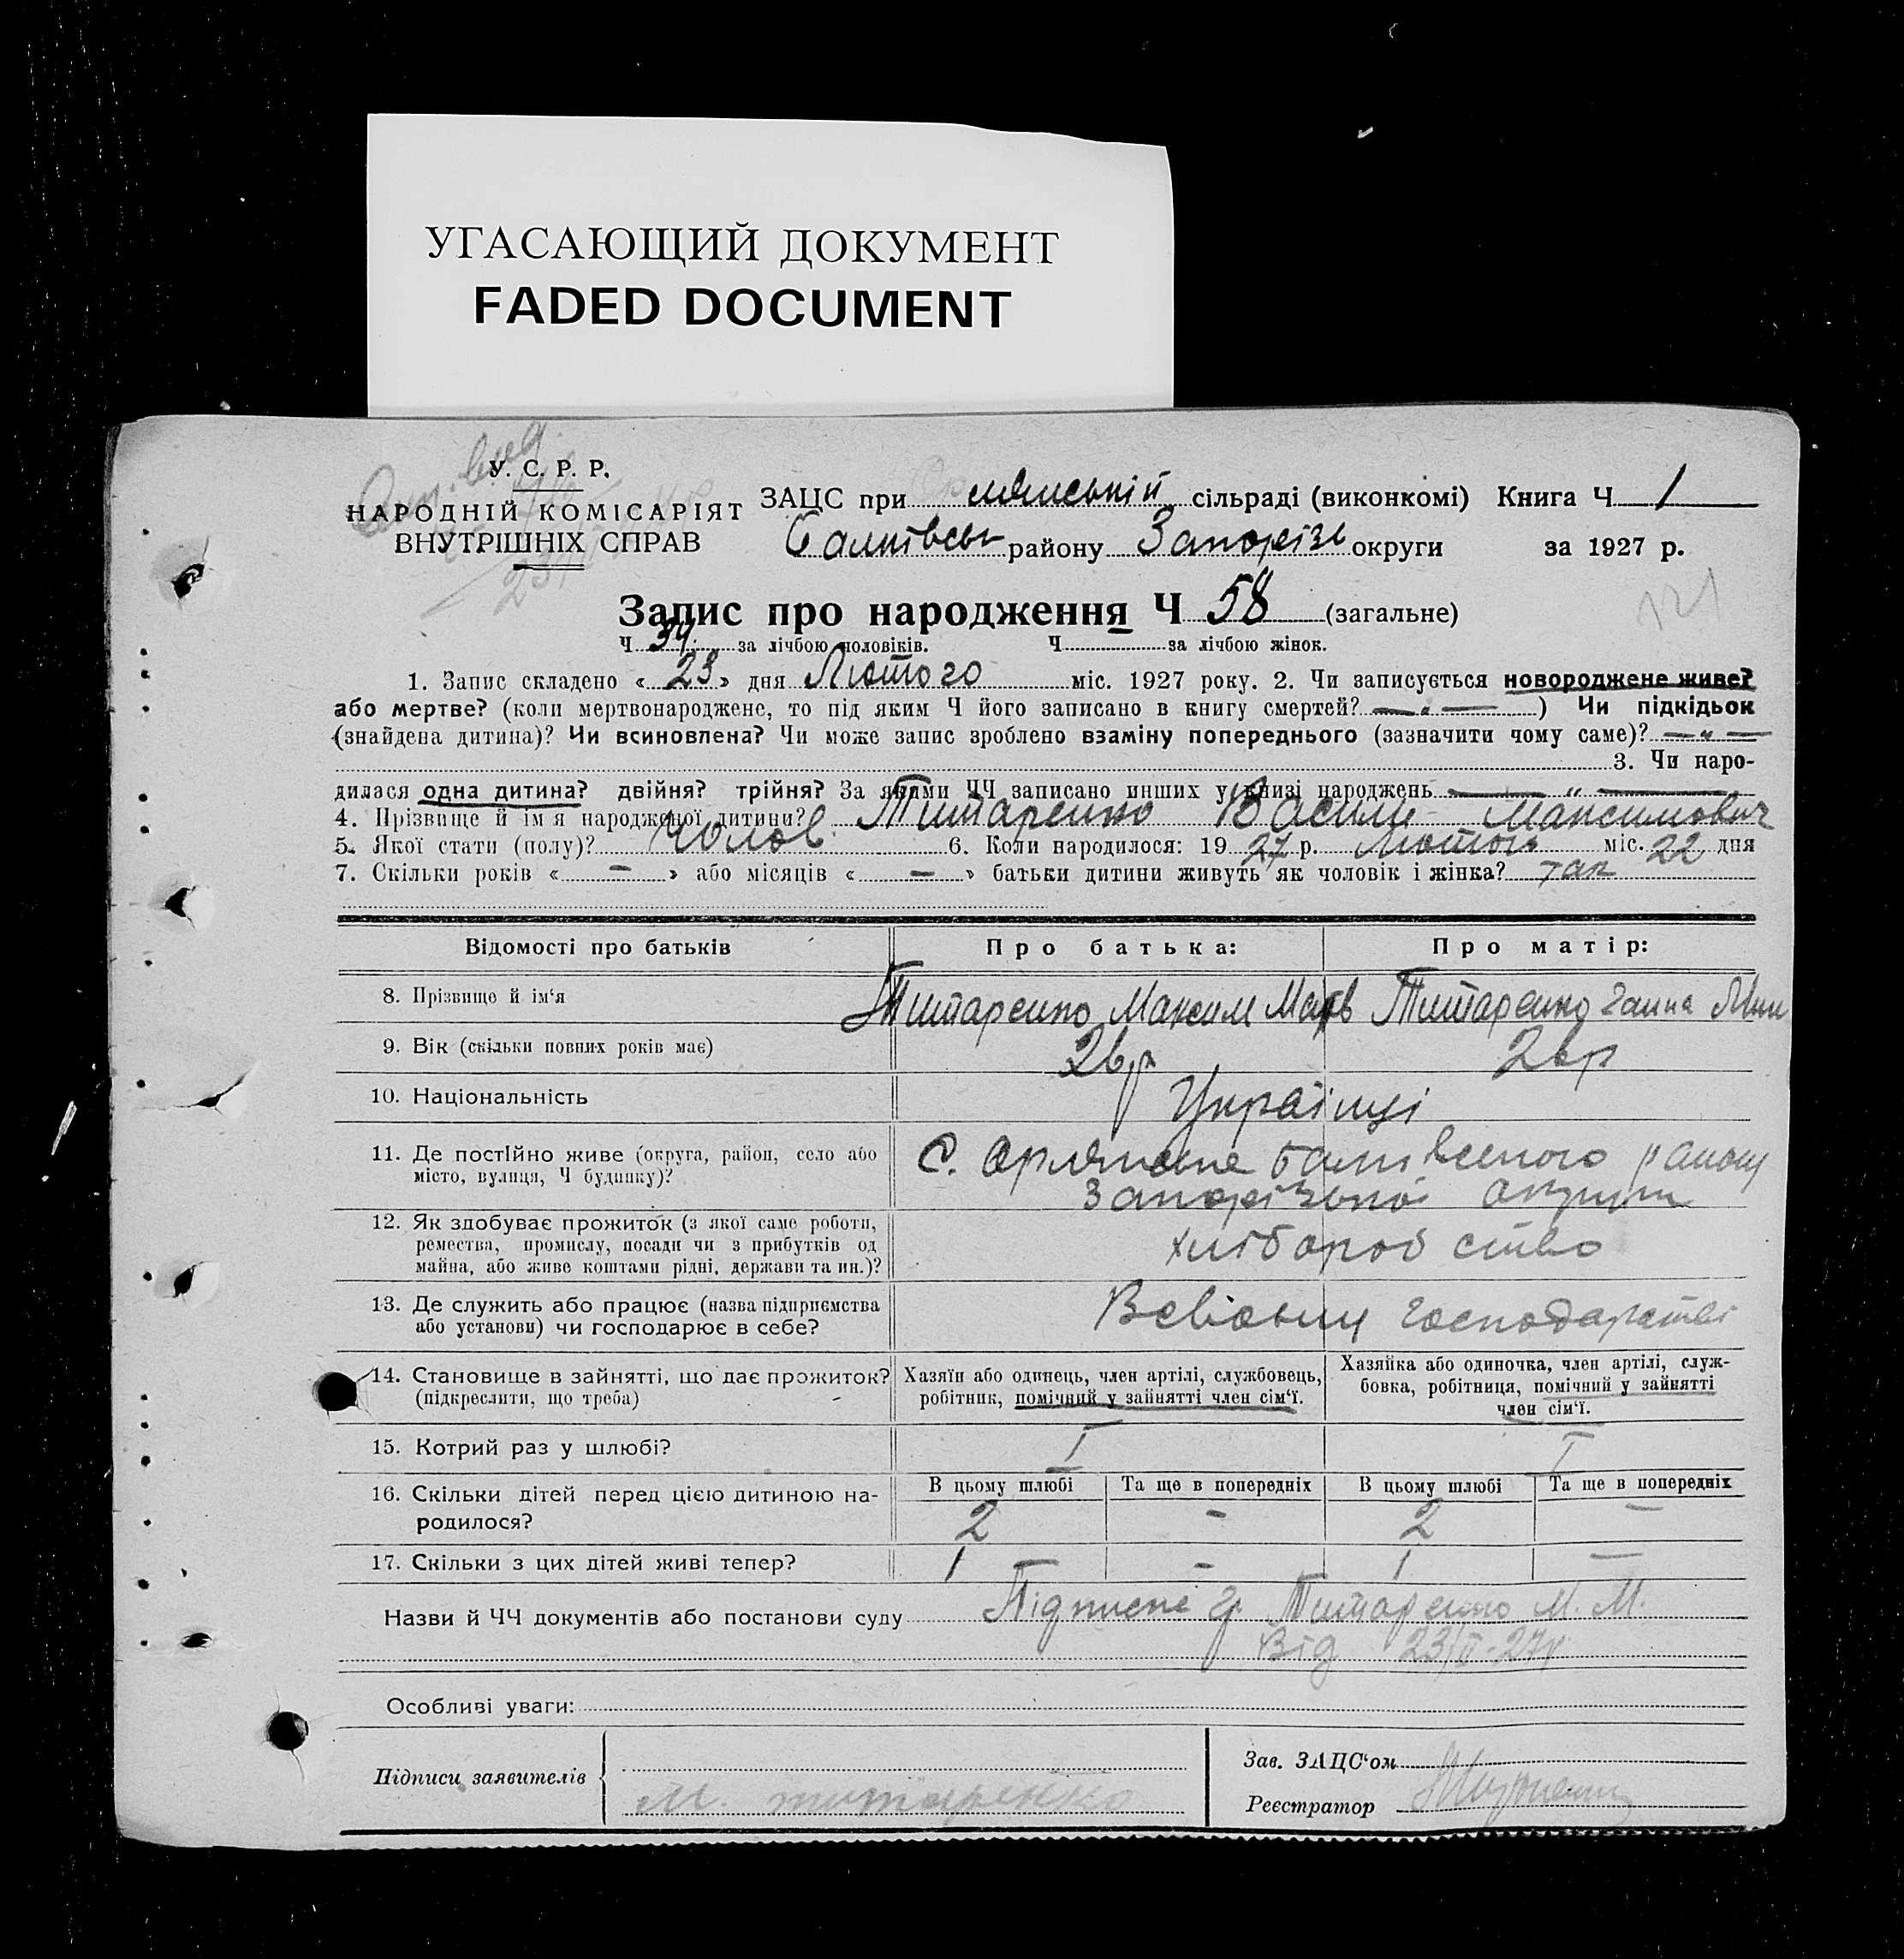 УГАСАЮЩИЙ ДОКУМЕНТ
FADED DOCUMENT
У. С. Р. Р.
НАРОДНІЙ КОМІСАРІЯТ
ВНУТРІШНІХ СПРАВ
ЗАЦС при сільраді (виконкомі) Книга Ч 1
району Запорізь округи за 1927 р.
Запис про народження Ч 58 (загальне)
121
Ч 34 за лічбою чоловіків. Ч за лічбою жінок.
1. Запис складено « 23 » дня Лютого міс. 1927 року. 2. Чи записується новороджене живе?
або мертве? (коли мертвонароджене, то під яким Ч його записано в книгу смертей? — „ — ) Чи підкідьок
(знайдена дитина)? Чи всиновлена? Чи може запис зроблено взаміну попереднього (зазначити чому саме)? — „ —
3. Чи наро-
дилася одна дитина? двійня? трійня? За якими ЧЧ записано инших у книзі народжень — „ —
4. Прізвище й ім'я народженої дитини? Титаренко Василь Максимович
5. Якої стати (полу)? чолов. 6. Коли народилося: 19 27 р. Лютого міс. 22 дня
7. Скільки років « — » або місяців « — » батьки дитини живуть як чоловік і жінка? так
Відомості про батьків Про батька: Про матір:
8. Прізвище й ім'я Титаренко Максим Титаренко Ганна
9. Вік (скільки повних років має) 26 р 26 р
10. Національність Українці
11. Де постійно живе (округа, район, село або
місто, вулиця, Ч будинку)?
с. району
Запорізької округи
12. Як здобуває прожиток (з якої саме роботи,
ремества, промислу, посади чи з прибутків од
майна, або живе коштами рідні, держави та ин.)?
хліборобство
13. Де служить або працює (назва підприємства
або установи) чи господарює в себе?
господарстві
14. Становище в зайнятті, що дає прожиток?
(підкреслити, що треба)
Хазяїн або одинець, член артілі, службовець,
робітник, помічний у зайнятті член сім'ї.
Хазяйка або одиночка, член артілі, служ-
бовка, робітниця, помічний у зайнятті
член сім'ї.
15. Котрий раз у шлюбі? I I
16. Скільки дітей перед цією дитиною на-
родилося?
В цьому шлюбі Та ще в попередніх В цьому шлюбі Та ще в попередніх
2 — 2 —
17. Скільки з цих дітей живі тепер? 1 — 1 —
Назви й ЧЧ документів або постанови суду гр. Титаренко М. М.
Від 23/II-27р
Особливі уваги:
Підписи заявителів
М. титаренко
Зав. ЗАЦС'ом
Реєстратор